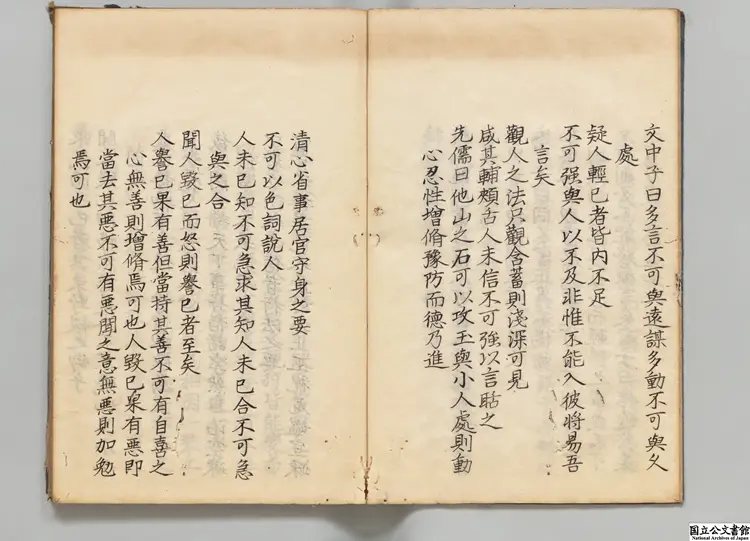 文中子曰多言不可與遠謀多動不可與久
處
疑人輕已者皆内不足
不可强與人以不及非惟不能入彼將易吾
言矣
觀人之法只觀含蓄則淺深可見
咸其輔頰舌人未信不可強以言聒之
先儒曰他山之石可以攻玉與小人處則動
心忍性增脩豫防而德乃進
清心省事居官守身之要
不可以色詞說人
人未已知不可急求其知人未已合不可急
與之合
聞人毀已而怒則譽已者至矣
人譽已果有善但當持其善不可有自喜之
心無善則增脩焉可也人毀已果有惡即
當去其惡不可有惡聞之意無惡則加勉
焉可也
国立公文書館
National Archives of Japan